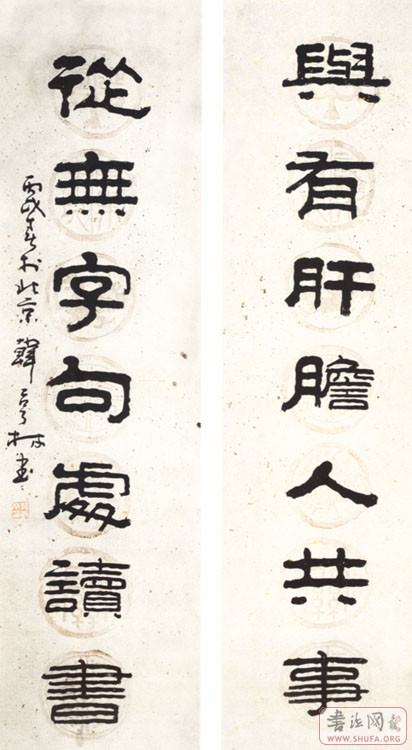 與有肝膽人共事
從無字句處讀書
丙戌春於北京韓亨林書
書法网
WWW.SHUFA.ORG